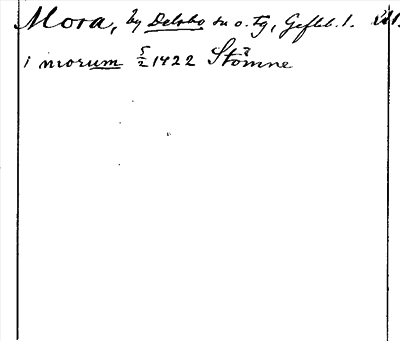 Mora, by Delsbo sn o. tg, Gefleb. l.
i morum 5/2 1422 Stömne